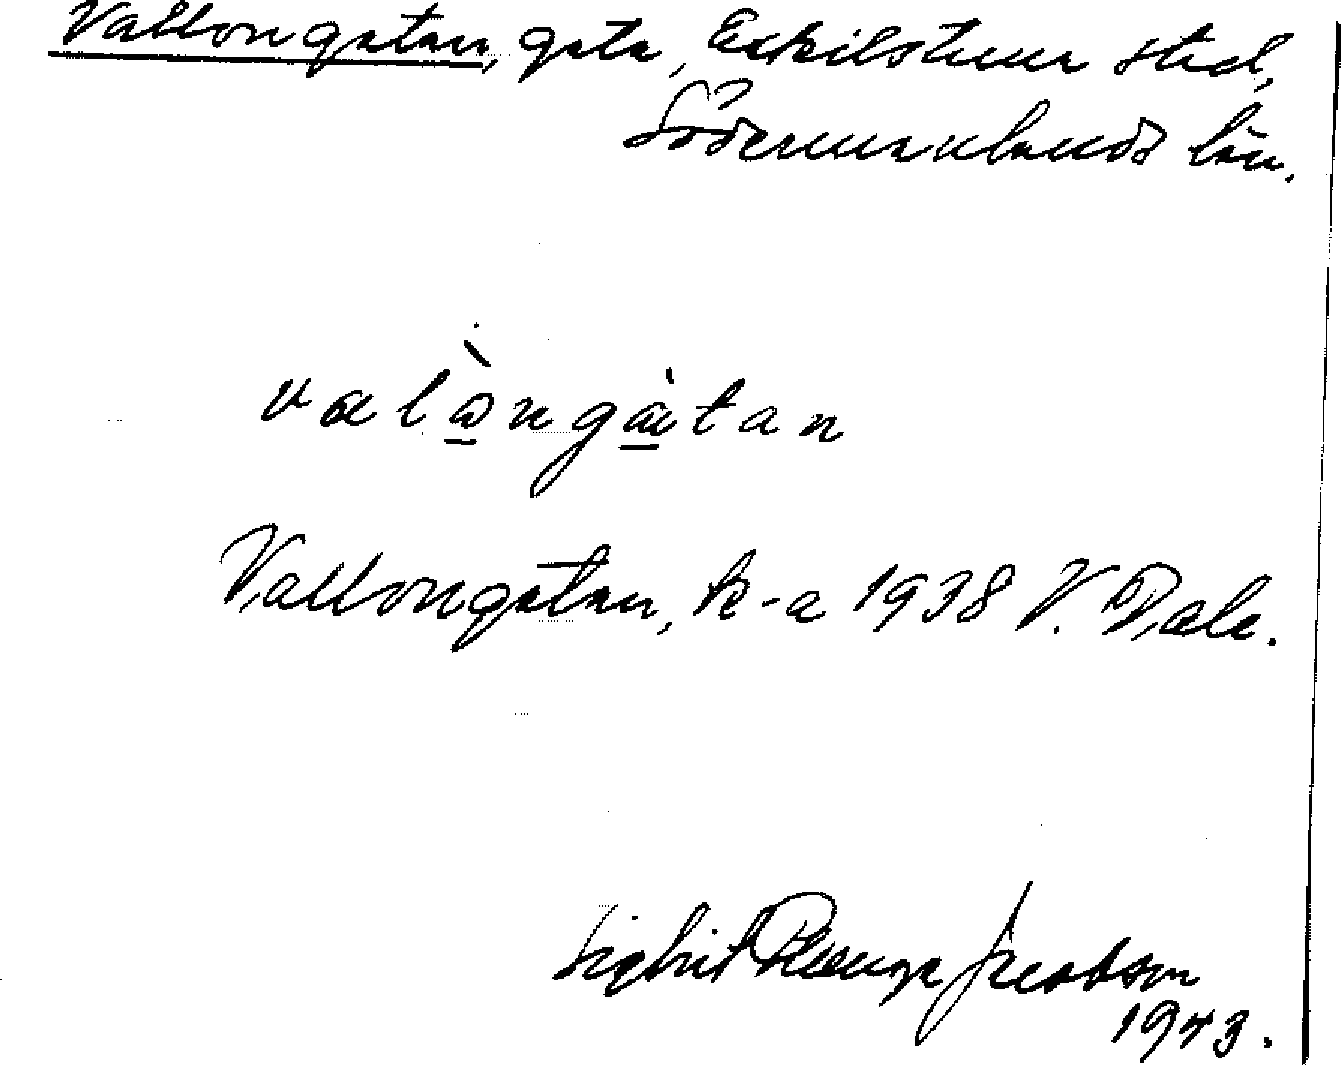 Vallongatan, gata, Eskilstuna stad,
Södermanlands län.
valo̱̊̀ngå̱̀tan
Vallongatan, k-a 1938 V. Dale.
Sigbrit Plænge Jacobson
1943.